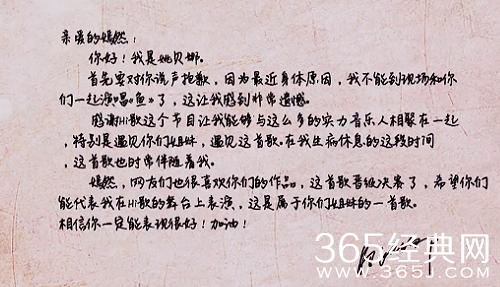 亲爱的嫣然:
你好!我是姚贝娜。
首先要对你说声抱歉,因为最近身体原因,我不能到现场和你
们一起演唱《鱼》了,这让我感到非常遗憾。
感谢Hi歌这个节目让我能够与这么多的实力音乐人相聚在一起
,特别是遇见你们姐妹,遇见这首歌。在我生病休息的这段时间
,这首歌也时常伴随着我。
嫣然,网友们也很喜欢你们的作品,这首歌晋级决赛了,希望你们
能代表我在Hi歌的舞台上表演,这是属于你们姐妹的一首歌。
相信你一定能表现很好!加油!
365经典网
www.365J.com